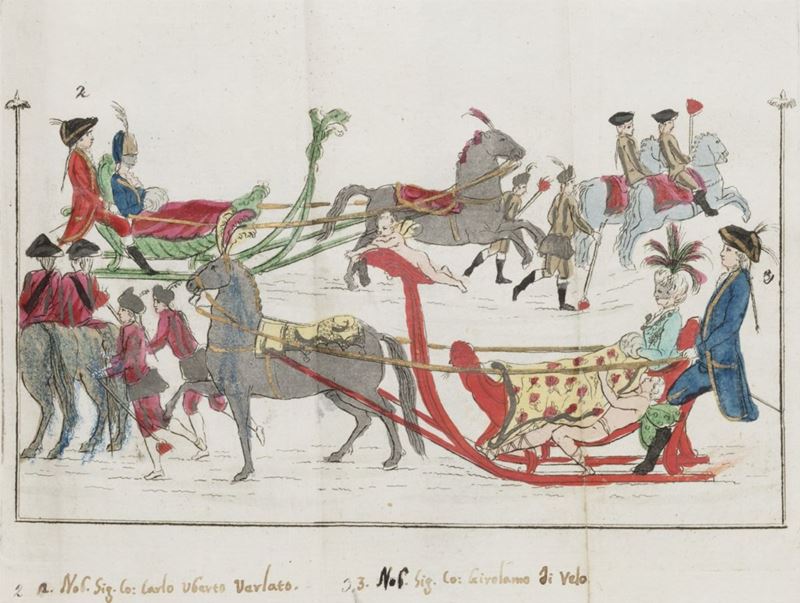 2
3
2 2. Nob. Sig. Co: Carlo Uberto Verlato. 3, 3. Nob. Sig. Co: Girolamo di Velo